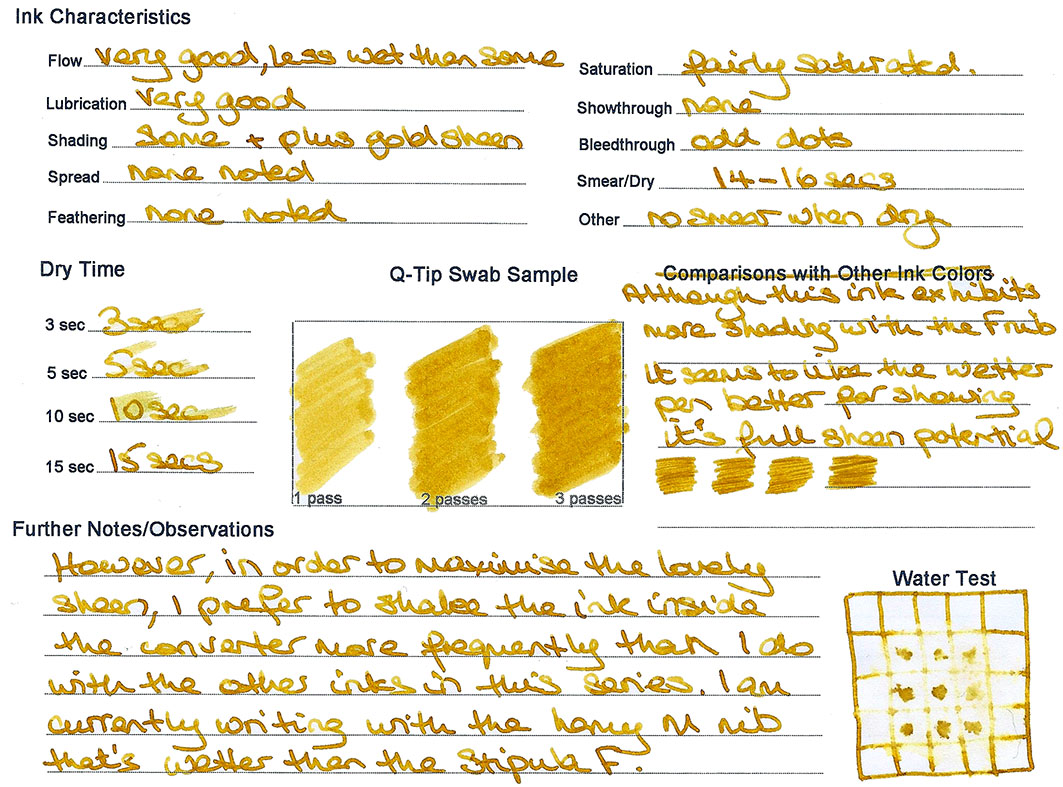 Ink Characteristics
Flow very good, less wet than some
Lubrication very good
Shading some + plus gold sheen
Spread none noted
Feathering none noted
Saturation fairly saturated.
Showthrough none
Bleedthrough odd dots
Smear/Dry 14-16 secs
Other no smear when dry
Dry Time
3 sec 3 sec
5 sec 5 sec
10 sec 10 sec
15 sec 15 secs
Q-Tip Swab Sample
1 pass 2 passes 3 passes
Comparisons with Other Ink Colors
Although this ink exhibits
more shading with the F nib
it seems to like the wetter
pen better for showing
it's full sheen potential
Further Notes/Observations
However, in order to maximise the lovely
sheen, I prefer to shake the ink inside
the converter more frequently than I do
with the other inks in this series. I am
currently writing with the M nib
that's wetter than the Stipula F.
Water Test